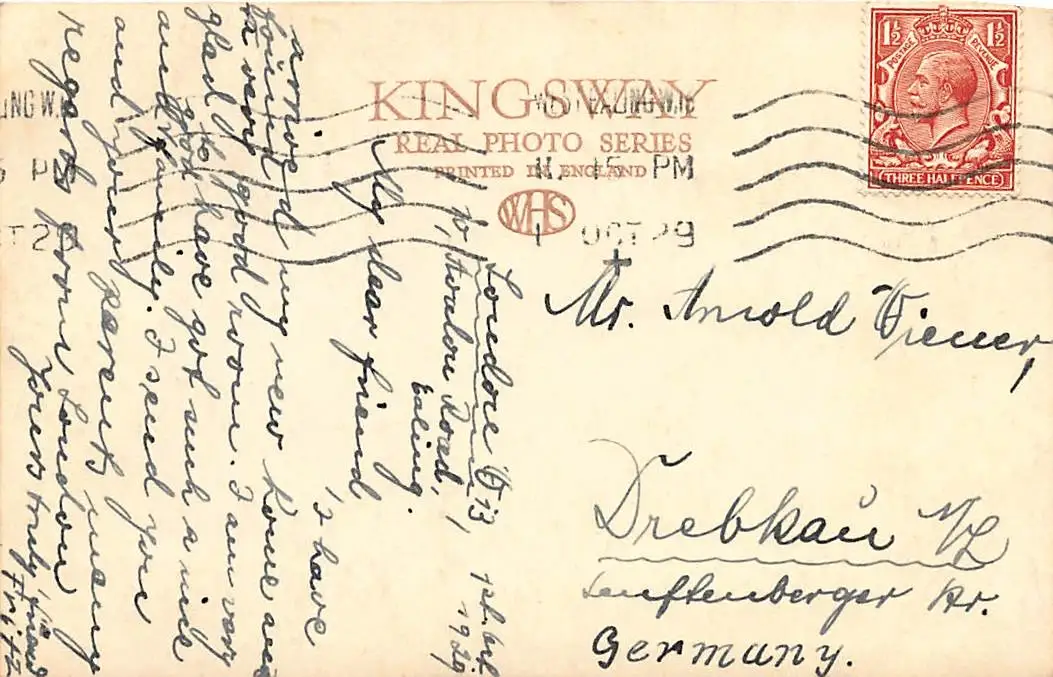 KINGSWAY
REAL PHOTO SERIES
PRINTED IN ENGLAND
WHS
1½ 1½
POSTAGE REVENUE
THREE HALFPENCE
WEST EALING W.13
15 PM
OCT 29
London W 13, 1929
Avalon Road,
Ealing.
My dear friend, I have
arrived my new home and
found
a very good room. I am very
glad to have got such a nice
and good family. I send you
and your parents many
regards from London
Yours truly, friend
Fritz
Mr. Arnold Wiener,
Drebkau N/L
Senftenberger Str.
Germany.